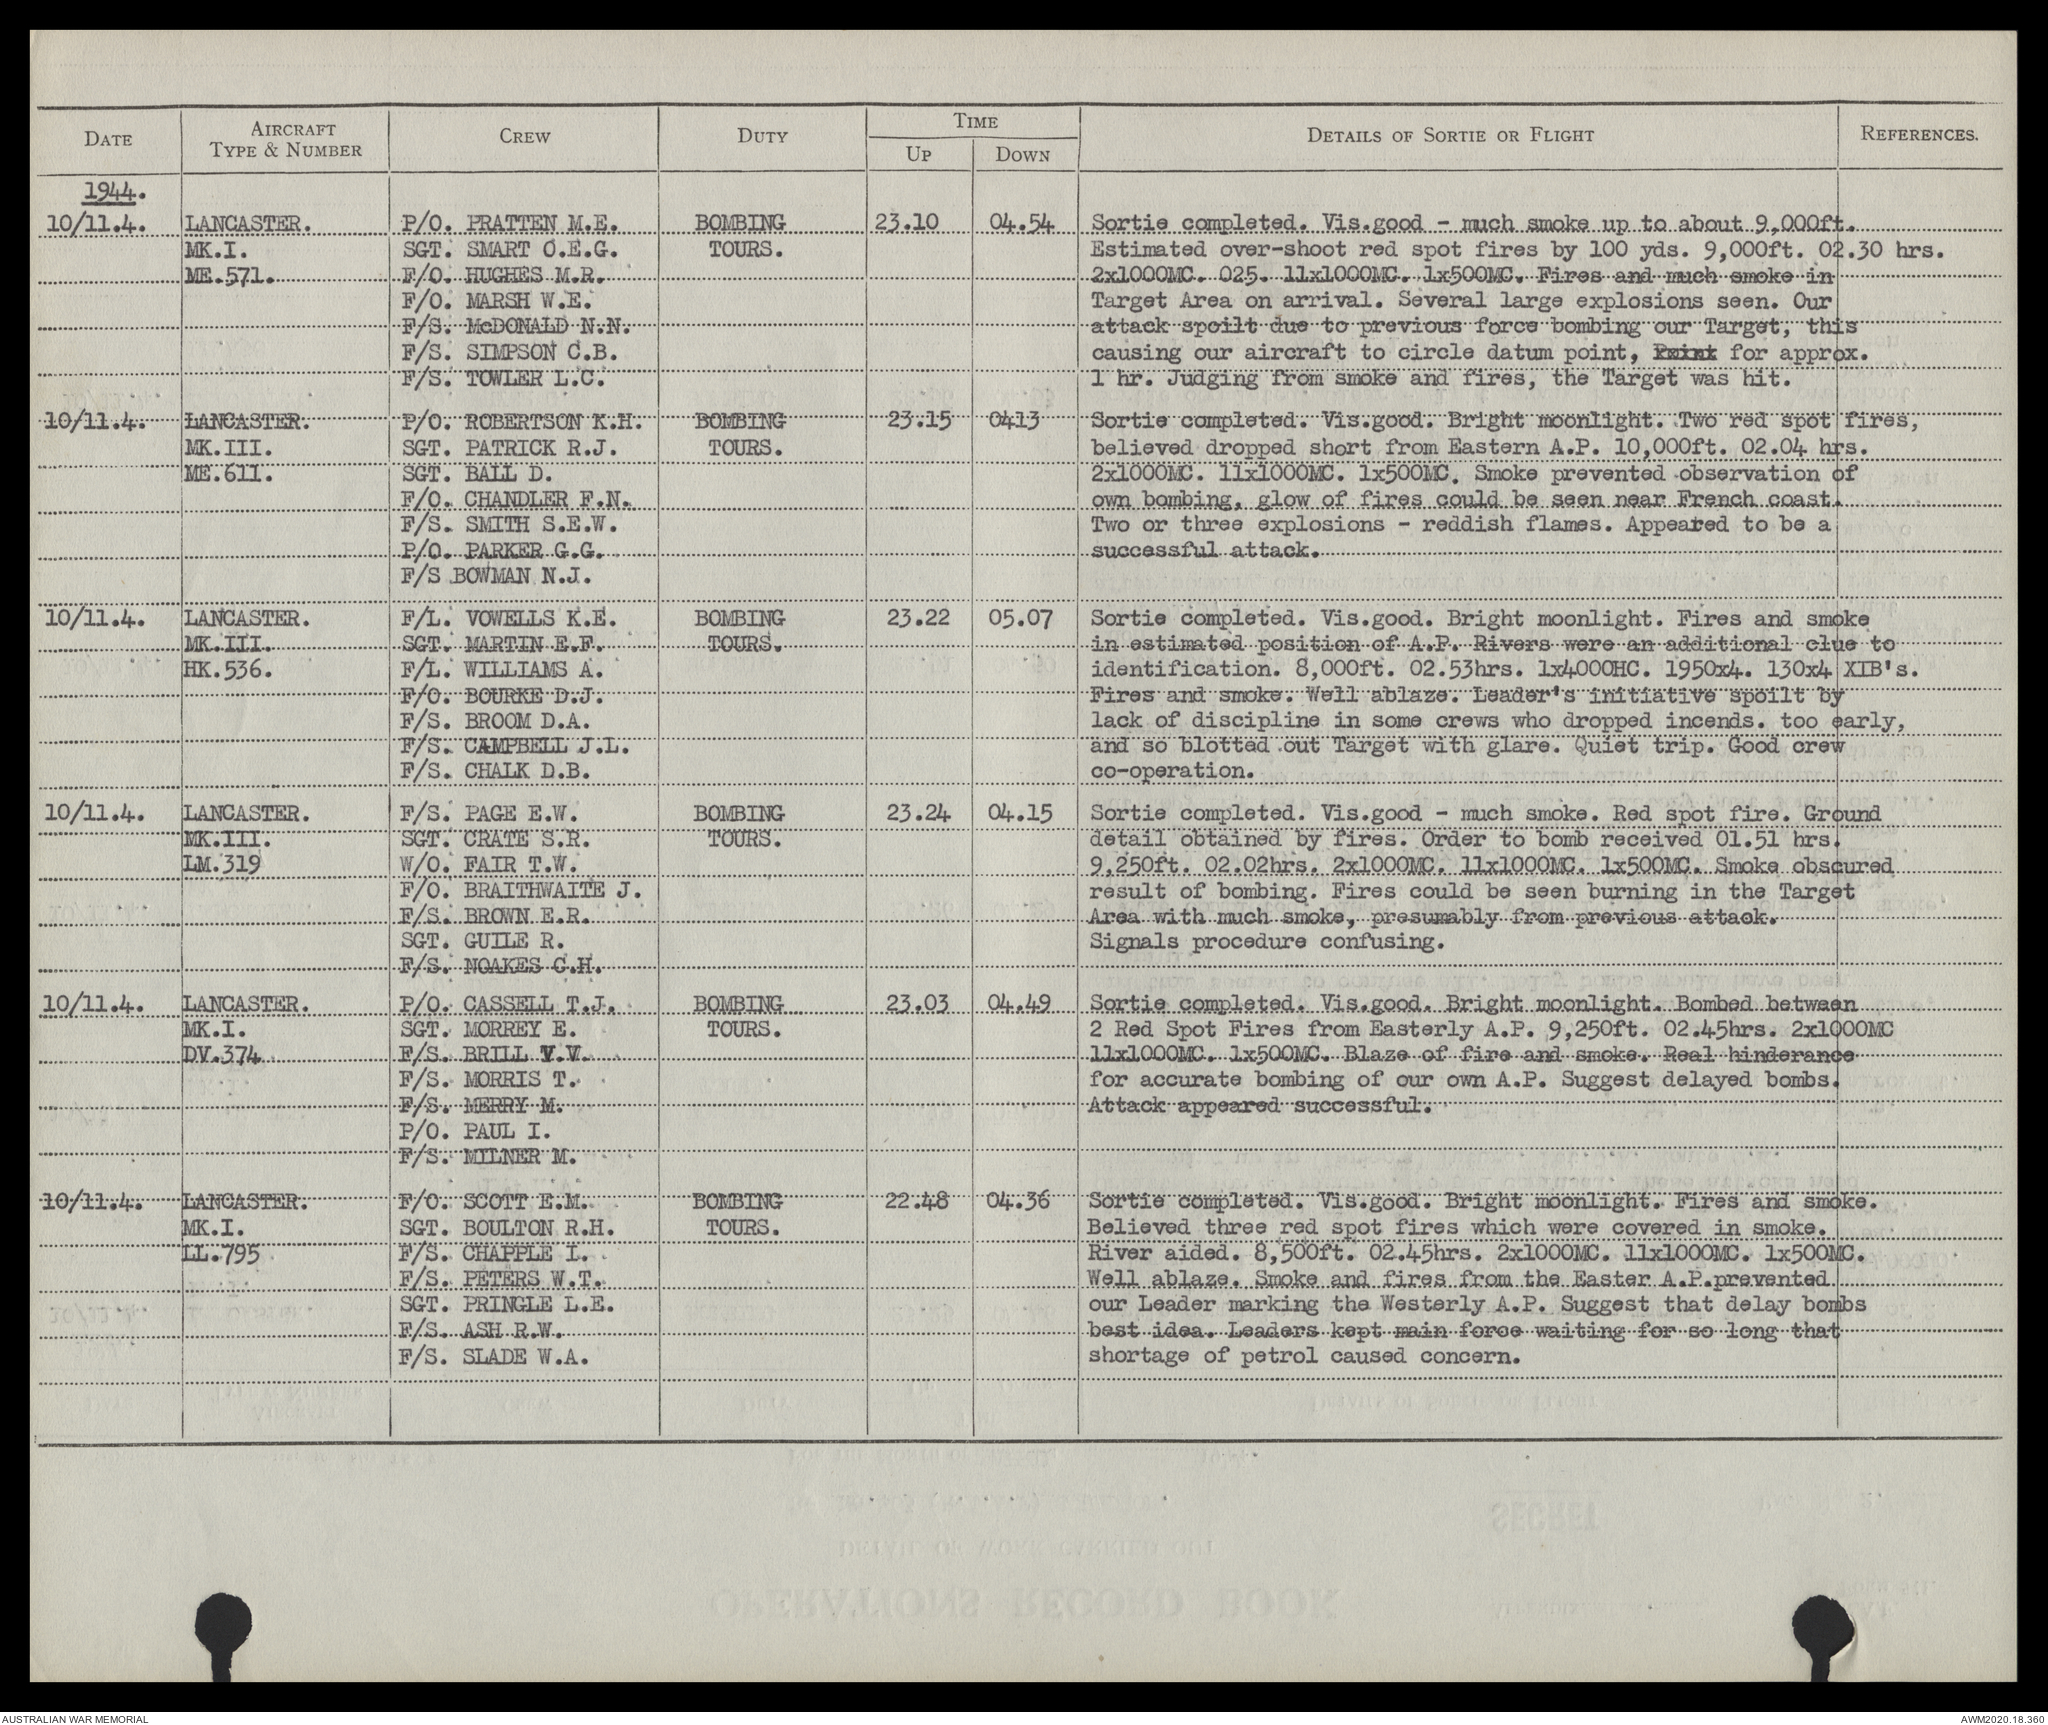 DATE AIRCRAFT TYPE & NUMBER CREW DUTY TIME UP DOWN DETAILS OF SORTIE OR FLIGHT REFERENCES.
1944.
10/11.4. LANCASTER. P/O. PRATTEN M.E. BOMBING 23.10 04.54 Sortie completed. Vis.good - much smoke up to about 9,000ft.
MK.I. SGT. SMART O.E.G. TOURS. Estimated over-shoot red spot fires by 100 yds. 9,000ft. 02.30 hrs.
ME.571. F/O. HUGHES M.R. 2x1000MC. 025. 11x1000MC. 1x500MC. Fires and much smoke in
F/O. MARSH W.E. Target Area on arrival. Several large explosions seen. Our
F/S. McDONALD N.N. attack spoilt due to previous force bombing our Target, this
F/S. SIMPSON C.B. causing our aircraft to circle datum point, Point for approx.
F/S. TOWLER L.C. 1 hr. Judging from smoke and fires, the Target was hit.
10/11.4. LANCASTER. P/O. ROBERTSON K.H. BOMBING 23.15 0413 Sortie completed. Vis.good. Bright moonlight. Two red spot fires,
MK.III. SGT. PATRICK R.J. TOURS. believed dropped short from Eastern A.P. 10,000ft. 02.04 hrs.
ME.611. SGT. BALL D. 2x1000MC. 11x1000MC. 1x500MC. Smoke prevented observation of
F/O. CHANDLER F.N. own bombing, glow of fires could be seen near French coast.
F/S. SMITH S.E.W. Two or three explosions - reddish flames. Appeared to be a
P/O. PARKER G.G. successful attack.
F/S BOWMAN N.J.
10/11.4. LANCASTER. F/L. VOWELLS K.E. BOMBING 23.22 05.07 Sortie completed. Vis.good. Bright moonlight. Fires and smoke
MK.III. SGT. MARTIN E.F. TOURS. in estimated position of A.P. Rivers were an additional clue to
HK.536. F/L. WILLIAMS A. identification. 8,000ft. 02.53hrs. 1x4000HC. 1950x4. 130x4 XIB's.
F/O. BOURKE D.J. Fires and smoke. Well ablaze. Leader's initiative spoilt by
F/S. BROOM D.A. lack of discipline in some crews who dropped incends. too early,
F/S. CAMPBELL J.L. and so blotted out Target with glare. Quiet trip. Good crew
F/S. CHALK D.B. co-operation.
10/11.4. LANCASTER. F/S. PAGE E.W. BOMBING 23.24 04.15 Sortie completed. Vis.good - much smoke. Red spot fire. Ground
MK.III. SGT. CRATE S.R. TOURS. detail obtained by fires. Order to bomb received 01.51 hrs.
LM.319 W/O. FAIR T.W. 9,250ft. 02.02hrs. 2x1000MC. 11x1000MC. 1x500MC. Smoke obscured
F/O. BRAITHWAITE J. result of bombing. Fires could be seen burning in the Target
F/S. BROWN E.R. Area with much smoke, presumably from previous attack.
SGT. GUILE R. Signals procedure confusing.
F/S. NOAKES C.H.
10/11.4. LANCASTER. P/O. CASSELL T.J. BOMBING 23.03 04.49 Sortie completed. Vis.good. Bright moonlight. Bombed between
MK.I. SGT. MORREY E. TOURS. 2 Red Spot Fires from Easterly A.P. 9,250ft. 02.45hrs. 2x1000MC
DV.374 F/S. BRILL V.V. 11x1000MC. 1x500MC. Blaze of fire and smoke. Real hinderance
F/S. MORRIS T. for accurate bombing of our own A.P. Suggest delayed bombs.
F/S. MERRY M. Attack appeared successful.
P/O. PAUL I.
F/S. MILNER M.
10/11.4. LANCASTER. F/O. SCOTT E.M. BOMBING 22.48 04.36 Sortie completed. Vis.good. Bright moonlight. Fires and smoke.
MK.I. SGT. BOULTON R.H. TOURS. Believed three red spot fires which were covered in smoke.
LL.795 F/S. CHAPPLE I. River aided. 8,500ft. 02.45hrs. 2x1000MC. 11x1000MC. 1x500MC.
F/S. PETERS W.T. Well ablaze. Smoke and fires from the Easter A.P.prevented
SGT. PRINGLE L.E. our Leader marking the Westerly A.P. Suggest that delay bombs
F/S. ASH R.W. best idea. Leaders kept main force waiting for so long that
F/S. SLADE W.A. shortage of petrol caused concern.
AUSTRALIAN WAR MEMORIAL AWM2020.18.360